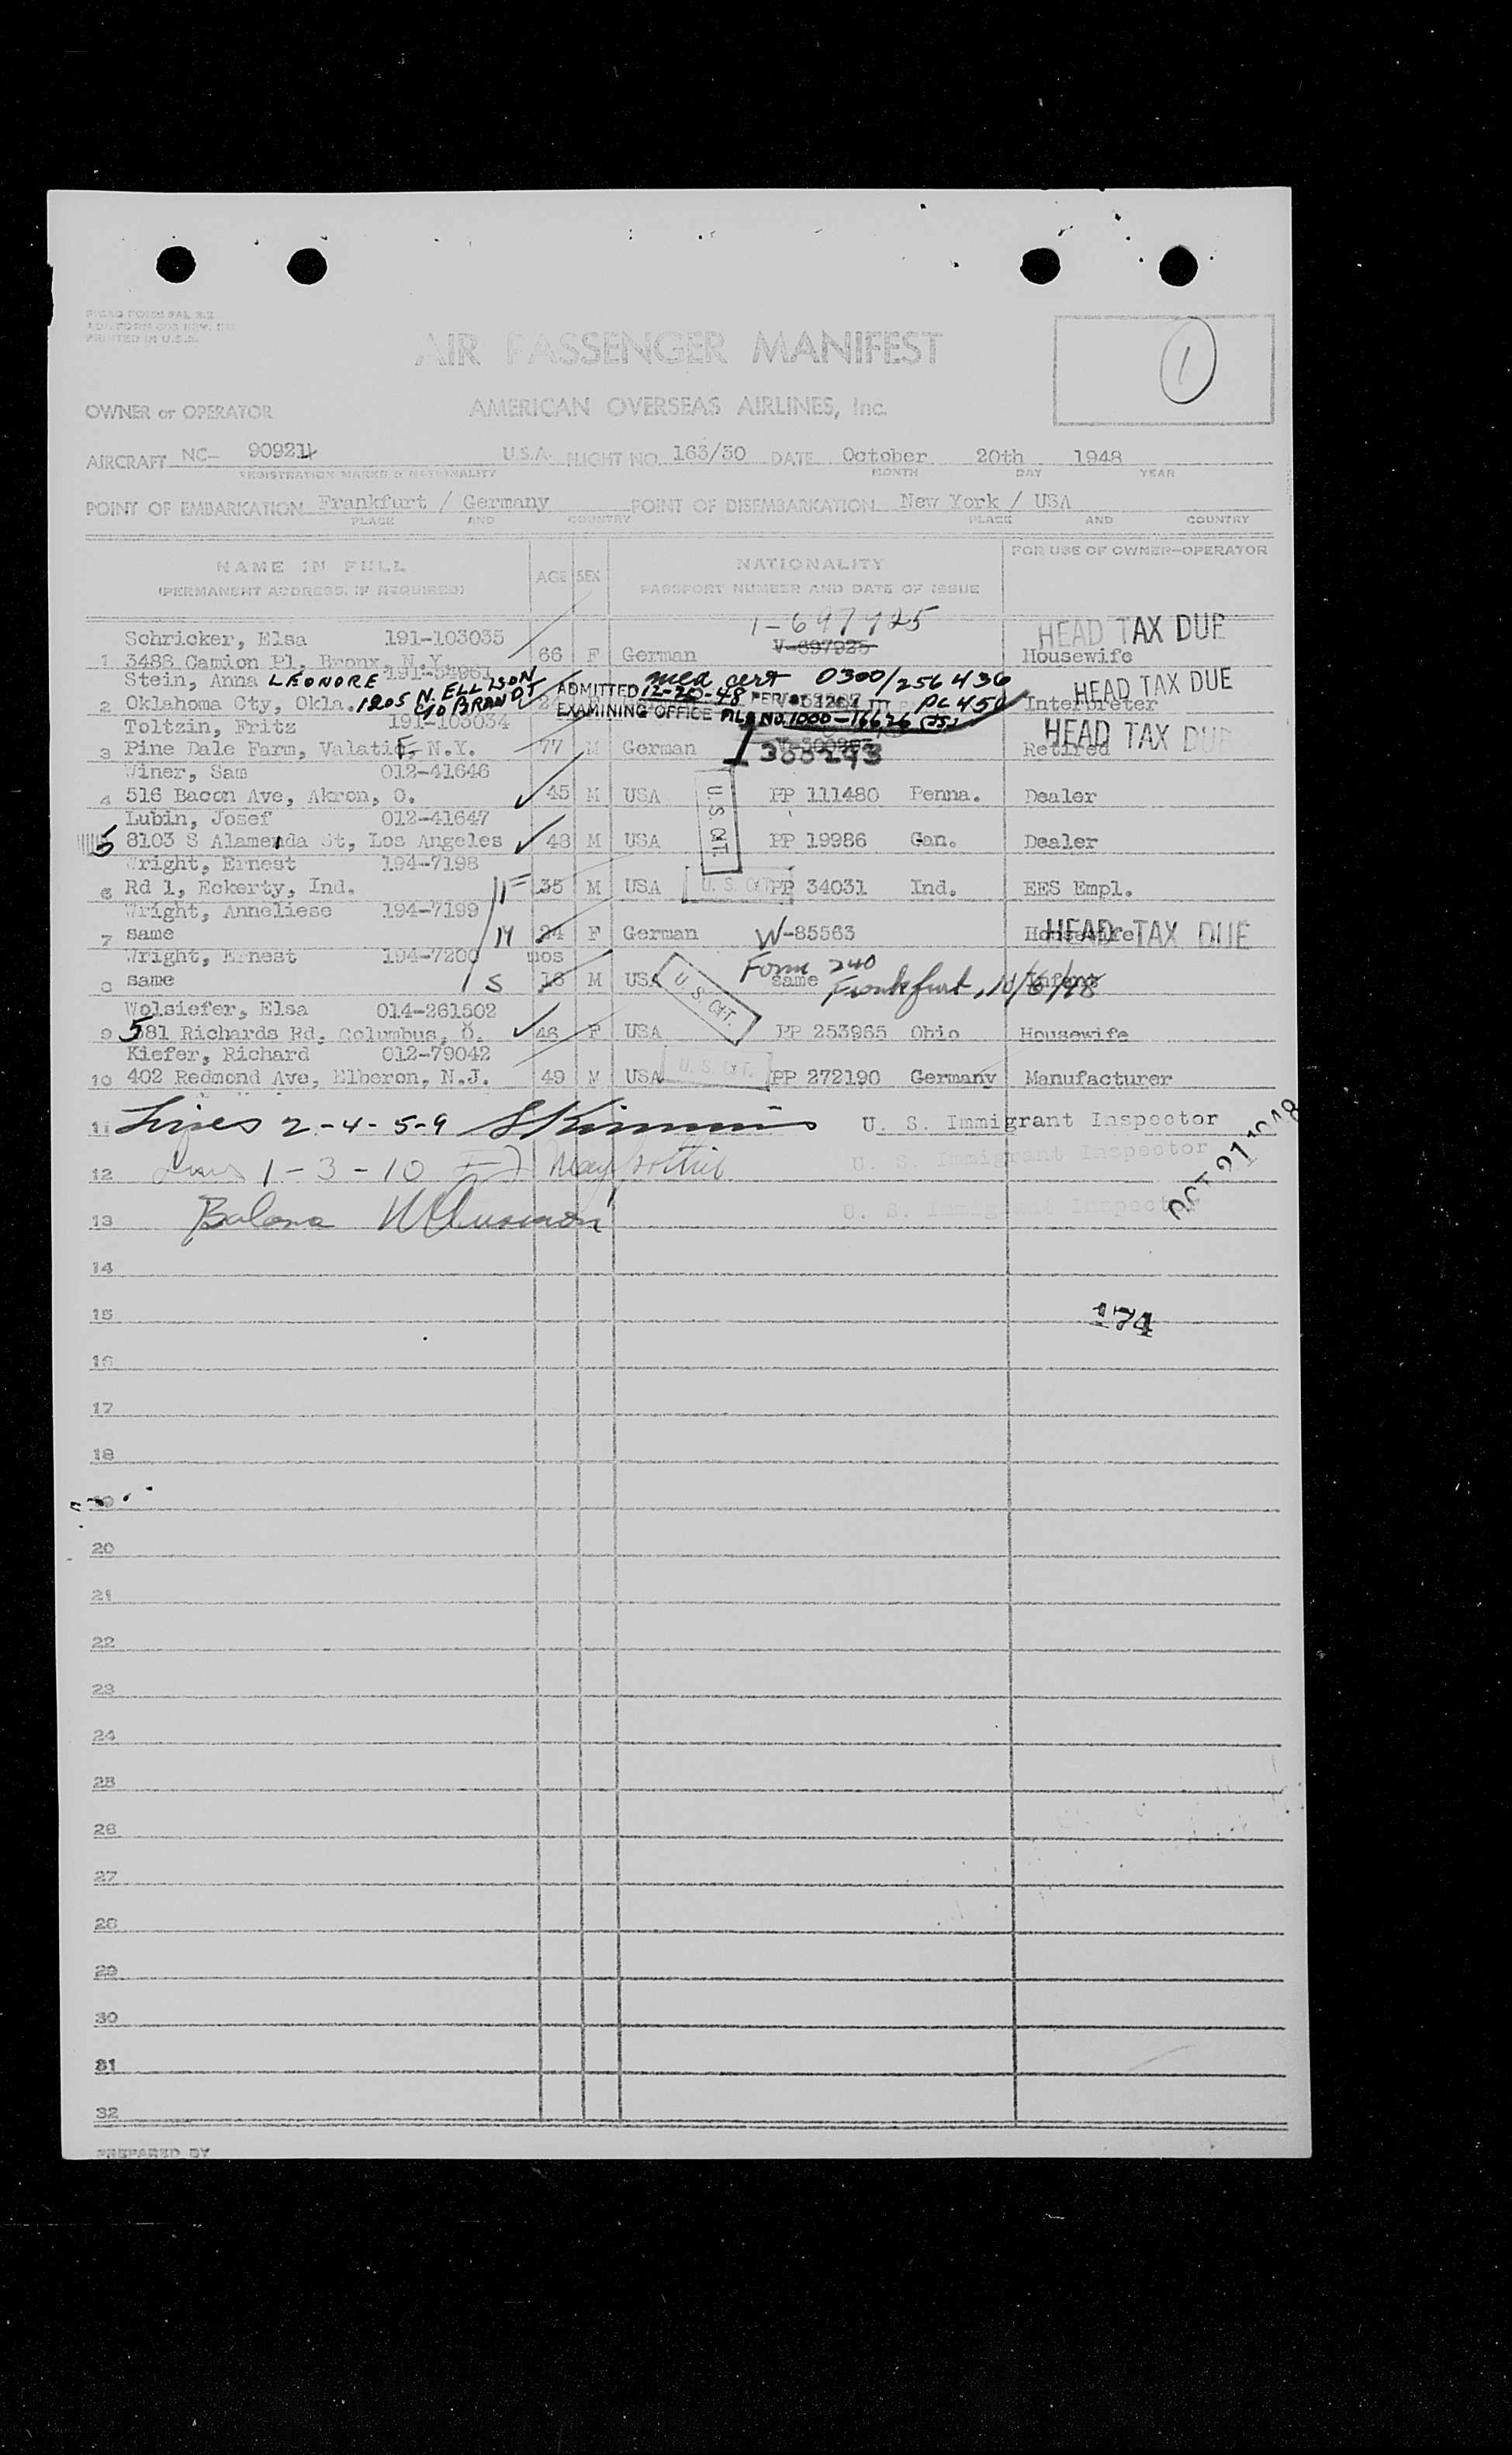 PRINTED IN U.S.A.
AIR PASSENGER MANIFEST
1
OWNER or OPERATOR AMERICAN OVERSEAS AIRLINES, Inc.
AIRCRAFT NC- 90921 U.S.A. FLIGHT NO. 163/30 DATE October 20th 1948
REGISTRATION MARKS & NATIONALITY MONTH DAY YEAR
POINT OF EMBARKATION Frankfurt / Germany POINT OF DISEMBARKATION New York / USA
PLACE AND COUNTRY PLACE AND COUNTRY
NAME IN FULL AGE SEX NATIONALITY FOR USE OF OWNER-OPERATOR
(PERMANENT ADDRESS, IF REQUIRED) PASSPORT NUMBER AND DATE OF ISSUE
I-697925
Schricker, Elsa 191-103035 V-697925 HEAD TAX DUE
1 3488 Camion Pl, Bronx, N.Y. 66 F German Housewife
Stein, Anna LEONORE 191-54961 N. ELLISON med cert 0300/256436 HEAD TAX DUE
2 Oklahoma Cty, Okla. 1205 C/O BRANDT ADMITTED 12-20-48 PER Interpreter
EXAMINING OFFICE FILE NO. 1000-16626
Toltzin, Fritz 191-103034 HEAD TAX DUE
3 Pine Dale Farm, Valatie, N.Y. 77 M German 300293 Retired
Winer, Sam 012-41646
4 516 Bacon Ave, Akron, O. 45 M USA PP 111480 Penna. Dealer
Lubin, Josef 012-41647 U.S. CIT.
5 8103 S Alameda St, Los Angeles 48 M USA PP 19986 Can. Dealer
Wright, Ernest 194-7198
6 Rd 1, Eckerty, Ind. 35 M USA U.S. CIT. PP 34031 Ind. EES Empl.
Wright, Anneliese 194-7199
7 same 24 F German W-85563 Housewife HEAD TAX DUE
Wright, Ernest 194-7200 mos Form 240
8 same 16 M USA U.S. CIT. same Frankfurt, 10/6/48 Infant
Wolsiefer, Elsa 014-261502
9 581 Richards Rd. Columbus, O. 46 F USA PP 253965 Ohio Housewife
Kiefer, Richard 012-79042
10 402 Redmond Ave, Elberon, N.J. 49 M USA U.S. CIT. PP 272190 Germany Manufacturer
11 Lines 2-4-5-9 U. S. Immigrant Inspector
12 Lines 1-3-10 U. S. Immigrant Inspector
OCT 21 1948
13 Balance U. S. Immigrant Inspector
14
15 174
16
17
18
19
20
21
22
23
24
25
26
27
28
29
30
31
32
PREPARED BY